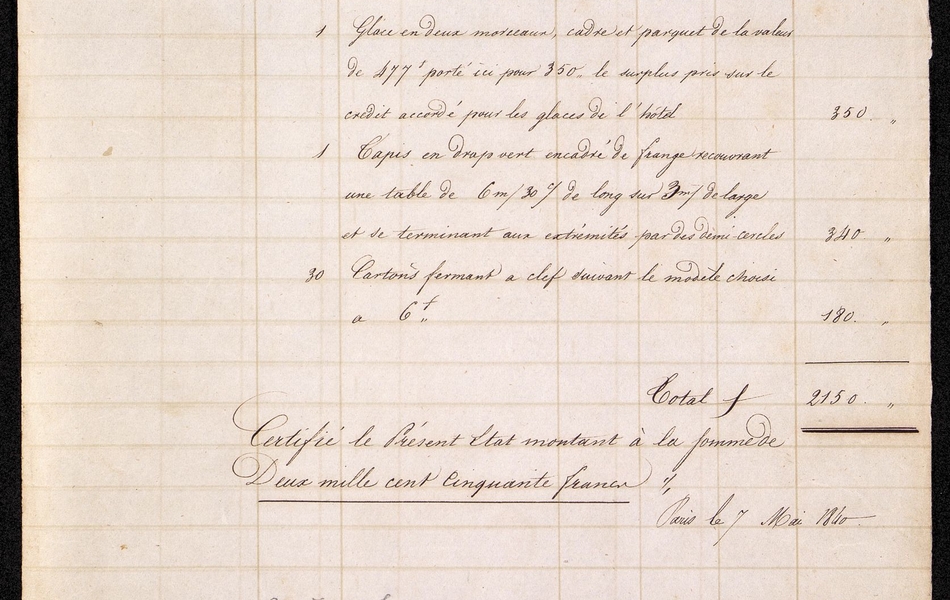 1 Glace en deux morceaux, cadre et parquet de la valeur
de 477f porté ici pour 350 " le surplus pris sur le
credit accordé pour les glaces de l'hôtel 350 "
1 Tapis en drap vert encadré de frange recouvrant
une table de 6m/30c/ de long sur 3m/ de large
et se terminant aux extrémités par des demi-cercles 340 "
30 Cartons fermant a clef suivant le modèle choisi
a 6f " 180 "
Total f 2150 "
Certifié le Présent Etat montant à la somme de
Deux mille cent cinquante francs "
Paris le 7 Mai 1840